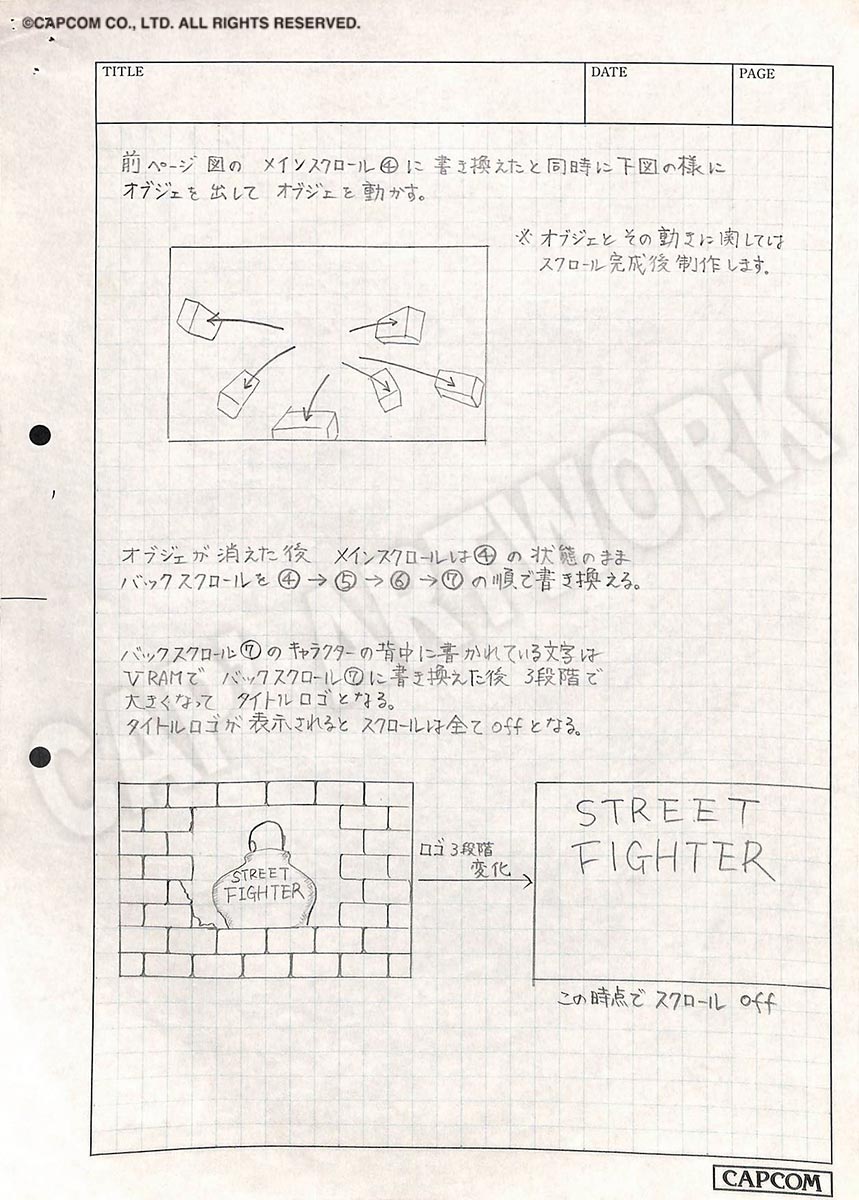 ©CAPCOM CO., LTD. ALL RIGHTS RESERVED.
TITLE
DATE
PAGE
前ページ 図の メインスクロール④に 書き換えたと同時に下図の様に
オブジェを 出して オブジェを動かす。
※ オブジェとその動きに関しては
スクロール完成後 制作します。
オブジェが 消えた後 メインスクロールは④の状態のまま
バックスクロールを ④→⑤→⑥→⑦ の順で書き換える。
バックスクロール⑦の キャラクターの背中に書かれている文字は
VRAMで バックスクロール⑦に書き換えた後 3段階で
大きくなって タイトルロゴとなる。
タイトルロゴが 表示されると スクロールは全て offとなる。
STREET
FIGHTER
ロゴ 3段階
変化
STREET
FIGHTER
この時点で スクロール off
CAP ARTWORK
CAPCOM